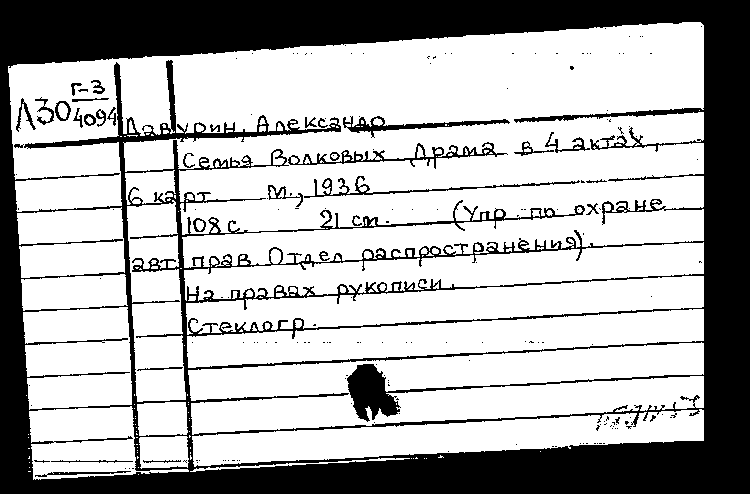 Г-3
Л30 4094
Давурин, Александр
Семья Волковых Драма в 4 актах,
6 карт. М., 1936
108 с. 21 см. (Упр. по охране
авт. прав. Отдел распространения).
На правах рукописи.
Стеклогр.